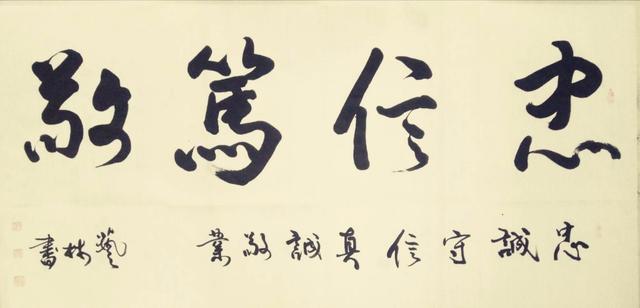 忠信篤敬
忠誠守信真誠敬業
藝林書